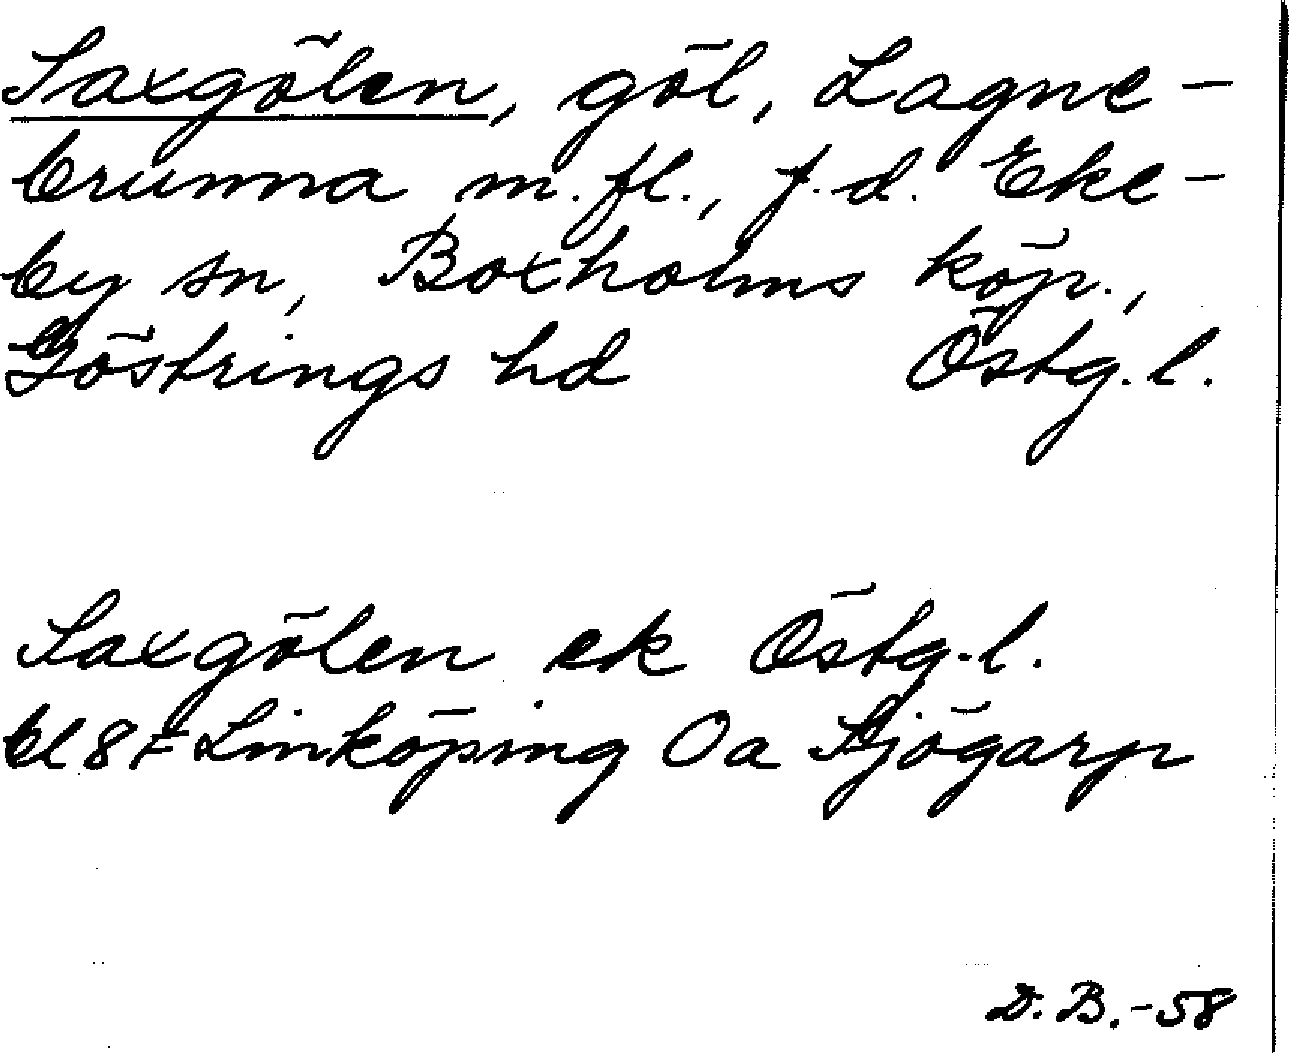 Saxgölen, göl, Lagne-
brunna m.fl., f.d. Eke-
by sn, Boxholms köp.,
Göstrings hd Östg.l.
Saxgölen ek Östg.l.
bl 8F Linköping Oa Sjögarp
D.B.-58